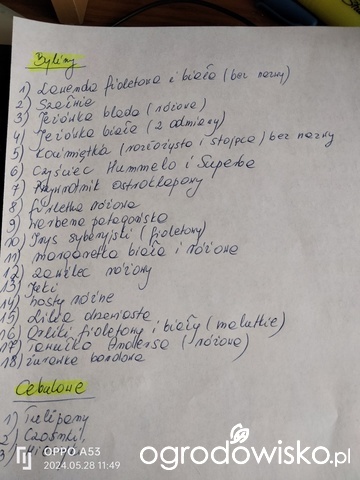 Byliny
1) Lawenda fioletowa i biała (bez nazwy)
2) Szałwia
3) Jeżówka blada (różowa)
4) Jeżówka biała (2 odmiany)
5) Kocimiętka (rozłożysta i stojąca) bez nazwy
6) Czyściec Hummelo i Superba
7) Przywrotnik ostroklapowy
8) firletka różowa
9) werbena patagońska
10) Irys syberyjski (fioletowy)
11) margaretka biała i różowa
12) zawilec różowy
13)
14) hosty różne
15) Lilia drzewiasta
16) Orliki fioletowy i biały (malutkie)
17) Tawułka Anderso (różowa)
18) żurawka bordowa
Cebulowe
1) Tulipany
2) Czosnki,
3)
OPPO A53
2024.05.28 11:49
ogrodowisko.pl